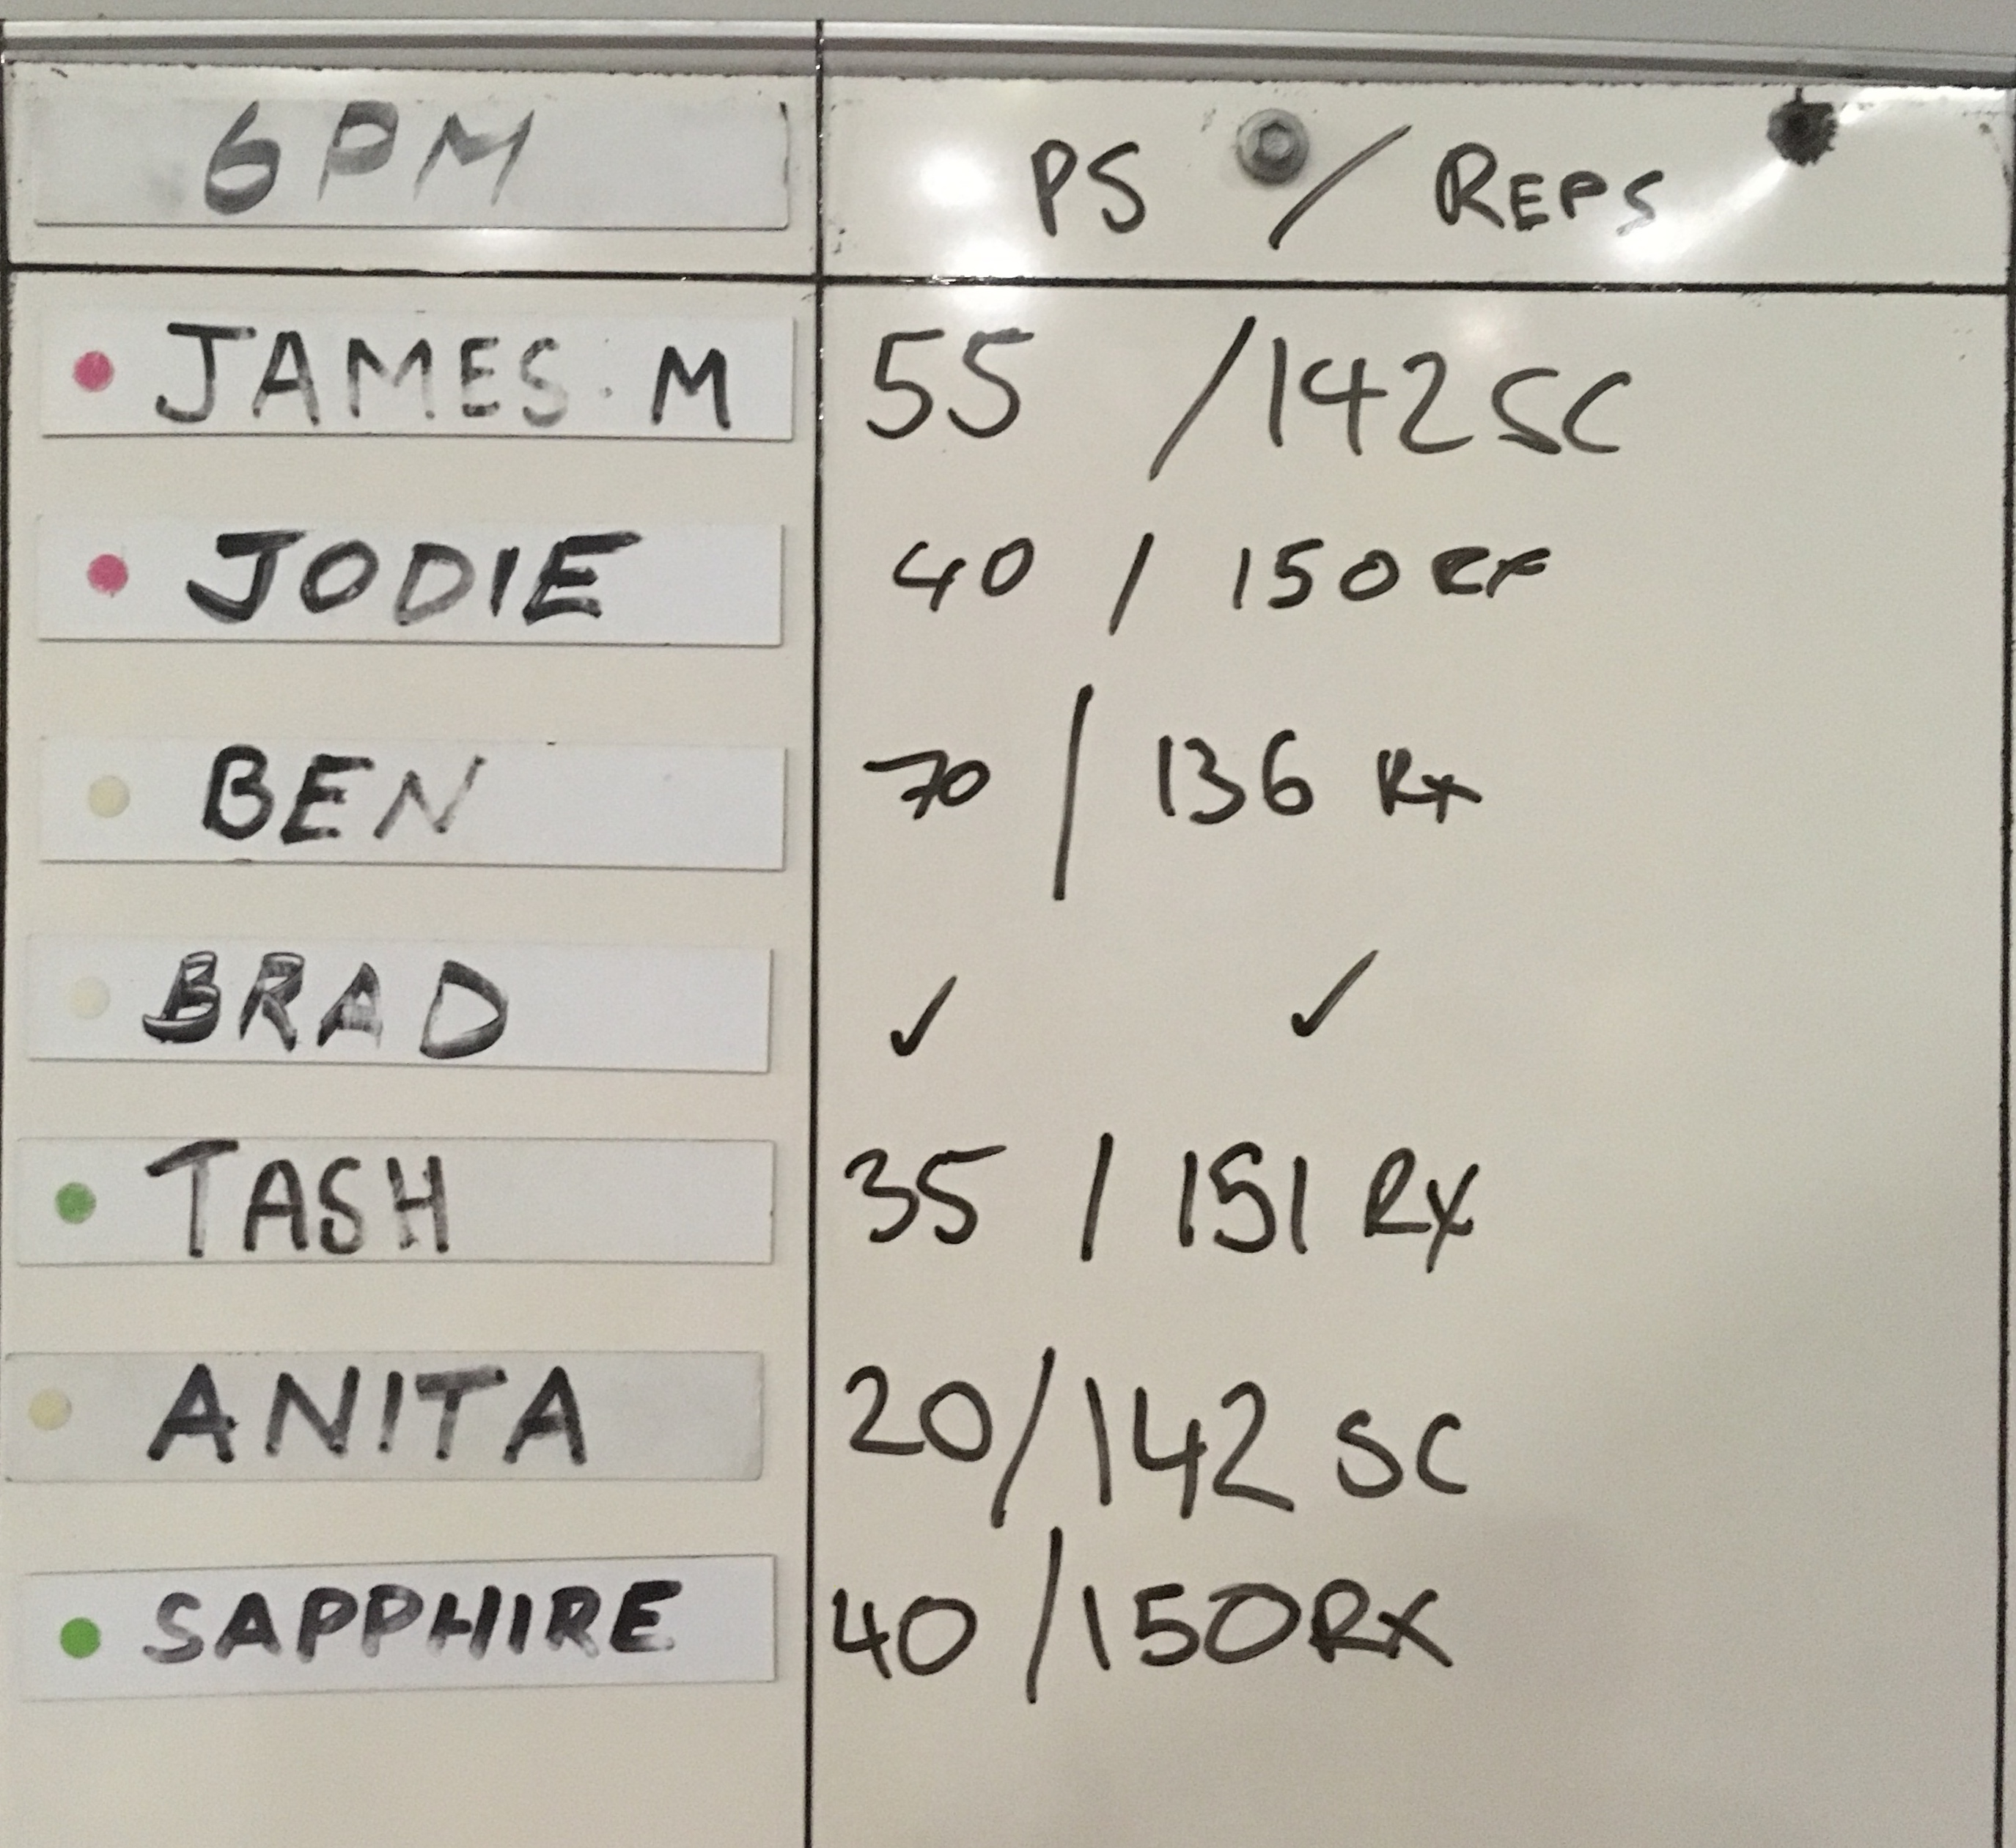 6PM PS / REPS
JAMES. M 55 / 142 SC
JODIE 40 / 150 RX
BEN 70 / 136 Rx
BRAD ✓ ✓
TASH 35 / 151 RX
ANITA 20 / 142 SC
SAPPHIRE 40 / 150 RX